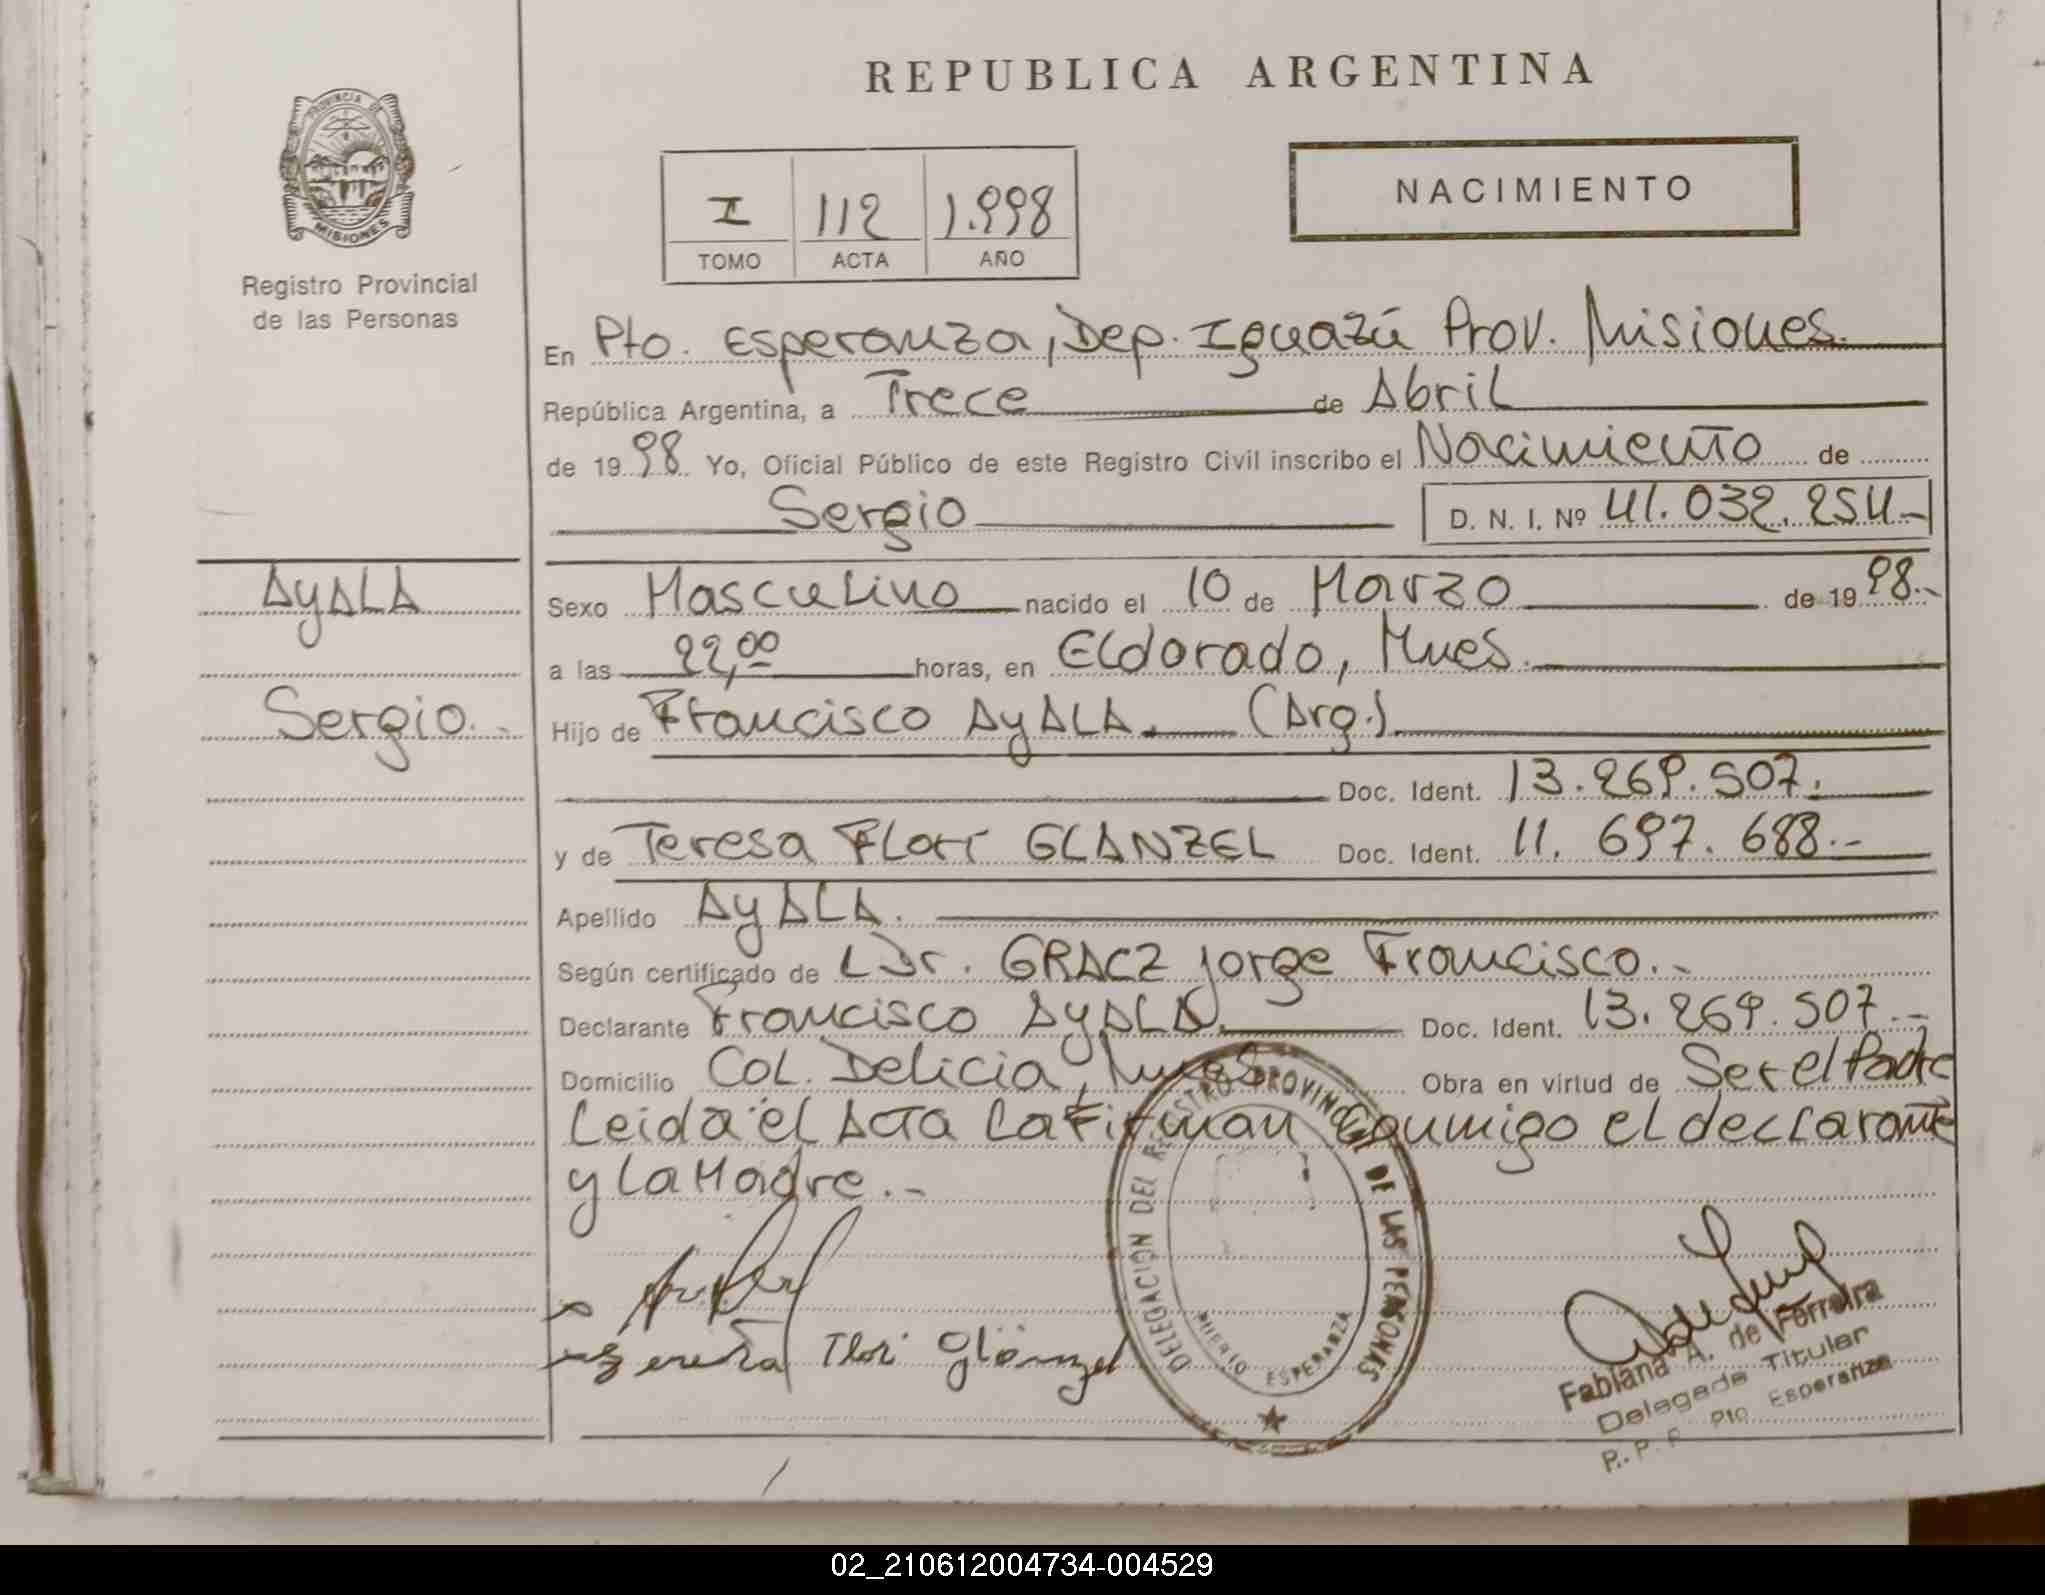 REPUBLICA ARGENTINA
PROVINCIA DE
MISIONES
Registro Provincial
de las Personas
I 112 1.998
TOMO ACTA AÑO
NACIMIENTO
En Pto. Esperanza, Dep. Iguazú Prov. Misiones.
República Argentina, a Trece de Abril
de 1998 Yo, Oficial Público de este Registro Civil inscribo el Nacimiento de
Sergio D. N. I. Nº 41.032.254-
AyALA
Sexo Masculino nacido el 10 de Marzo de 1998.-
a las 22,00 horas, en Eldorado, Mnes.
Sergio.-
Hijo de Francisco AyALA. (Arg.)
Doc. Ident. 13.269.507.
y de Teresa Flori GLANZEL Doc. Ident. 11.697.688.-
Apellido AyALA.
Según certificado de L Dr. GRACZ Jorge Francisco.-
Declarante Francisco AyALA. Doc. Ident. 13.269.507.-
Domicilio Col. Delicia, Mnes Obra en virtud de Ser el Padre
Leida el Acta La Firman Conmigo el declarante
y La Madre.-
Tereza Flori Glänzel
DELEGACIÓN DEL REGISTRO PROVINCIAL DE LAS PERSONAS
PUERTO ESPERANZA
Fabiana A. de Ferreira
Delegada Titular
R. P. P. Pto. Esperanza
02_210612004734-004529